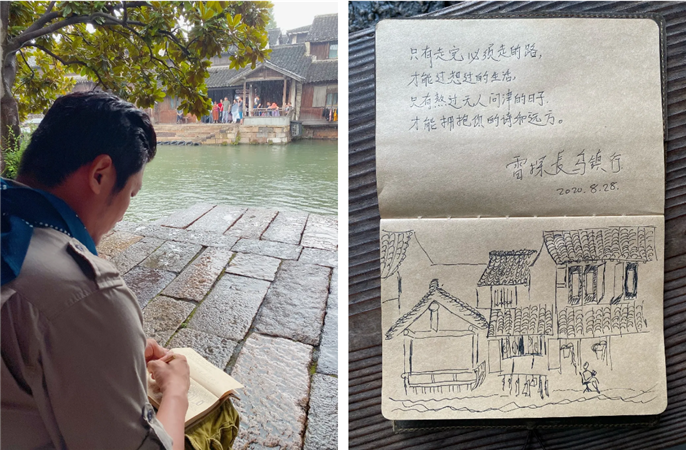 只有走完必须走的路,
才能过想过的生活,
只有熬过无人问津的日子.
才能拥抱你的诗和远方。
雷探長乌镇行
2020.8.28.